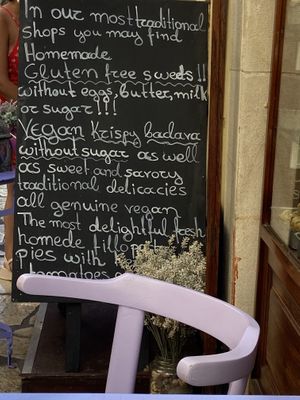 In our most traditional
shops you may find
Homemade
Gluten free sweets!!
without eggs, butter, milk
or sugar!!!
Vegan Krispy baclava
without sugar as well
as sweet and savory
traditional delicacies
all genuine vegan
The most delightful, fresh
homede fillo
pies with